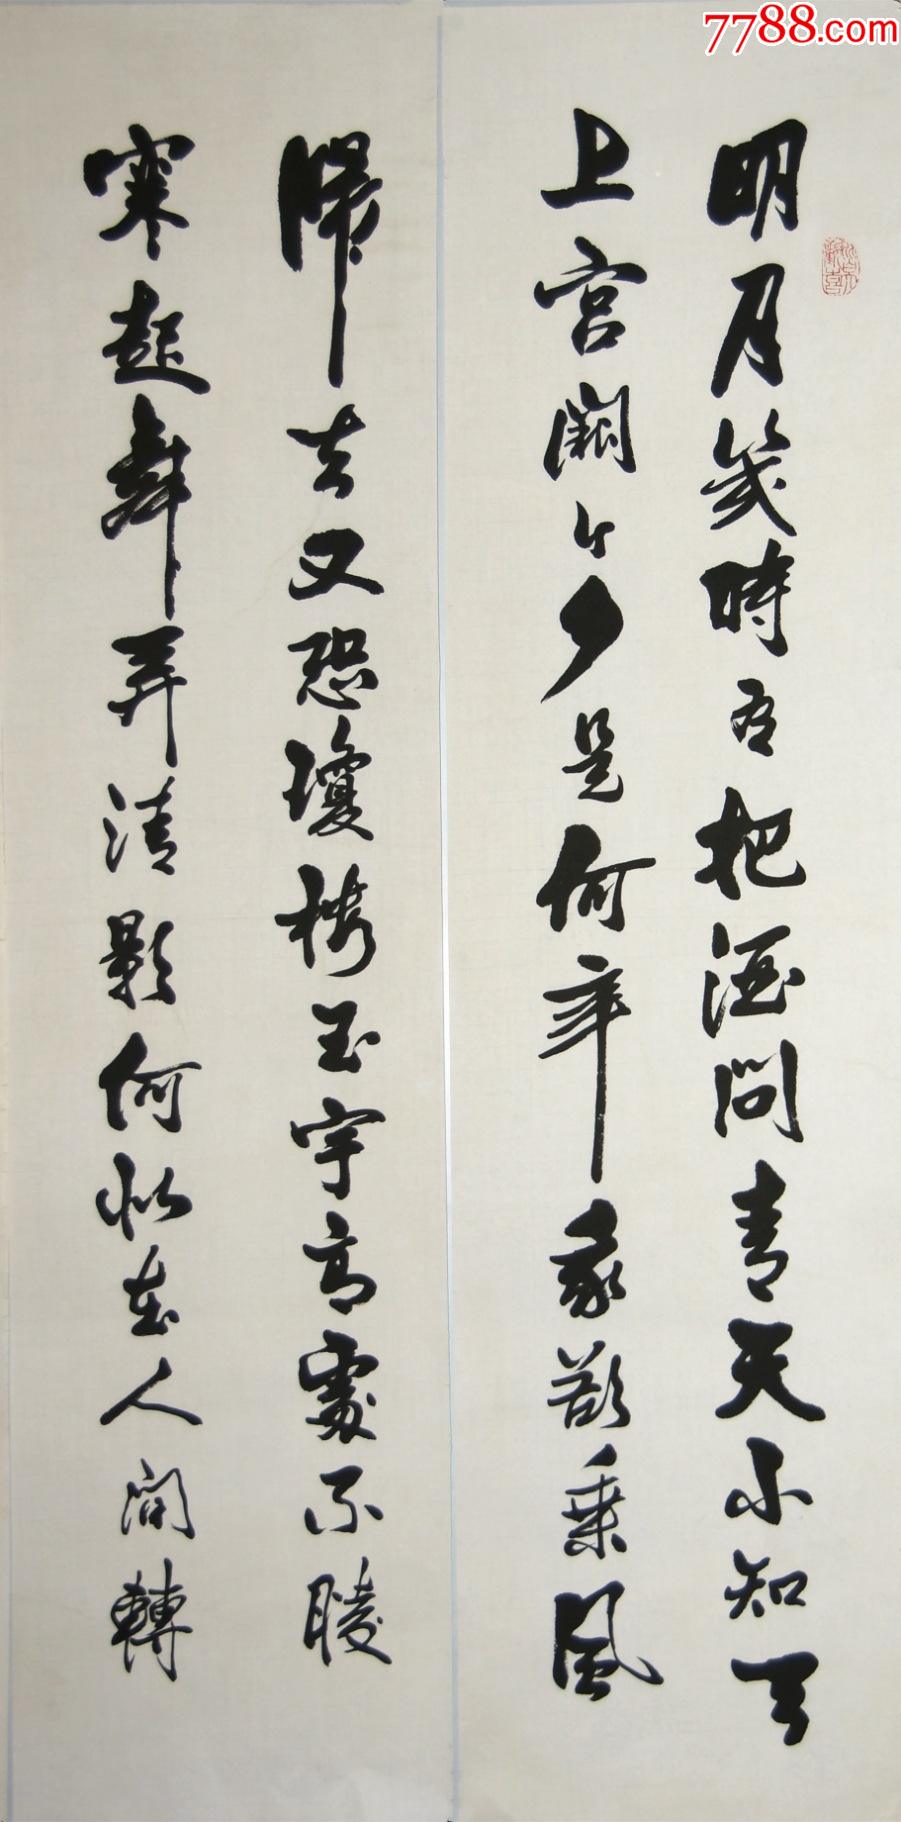 7788.com
明月幾時有把酒問青天不知天
上宮闕今夕是何年我欲乘風
歸去又恐瓊樓玉宇高處不勝
寒起舞弄清影何似在人間轉